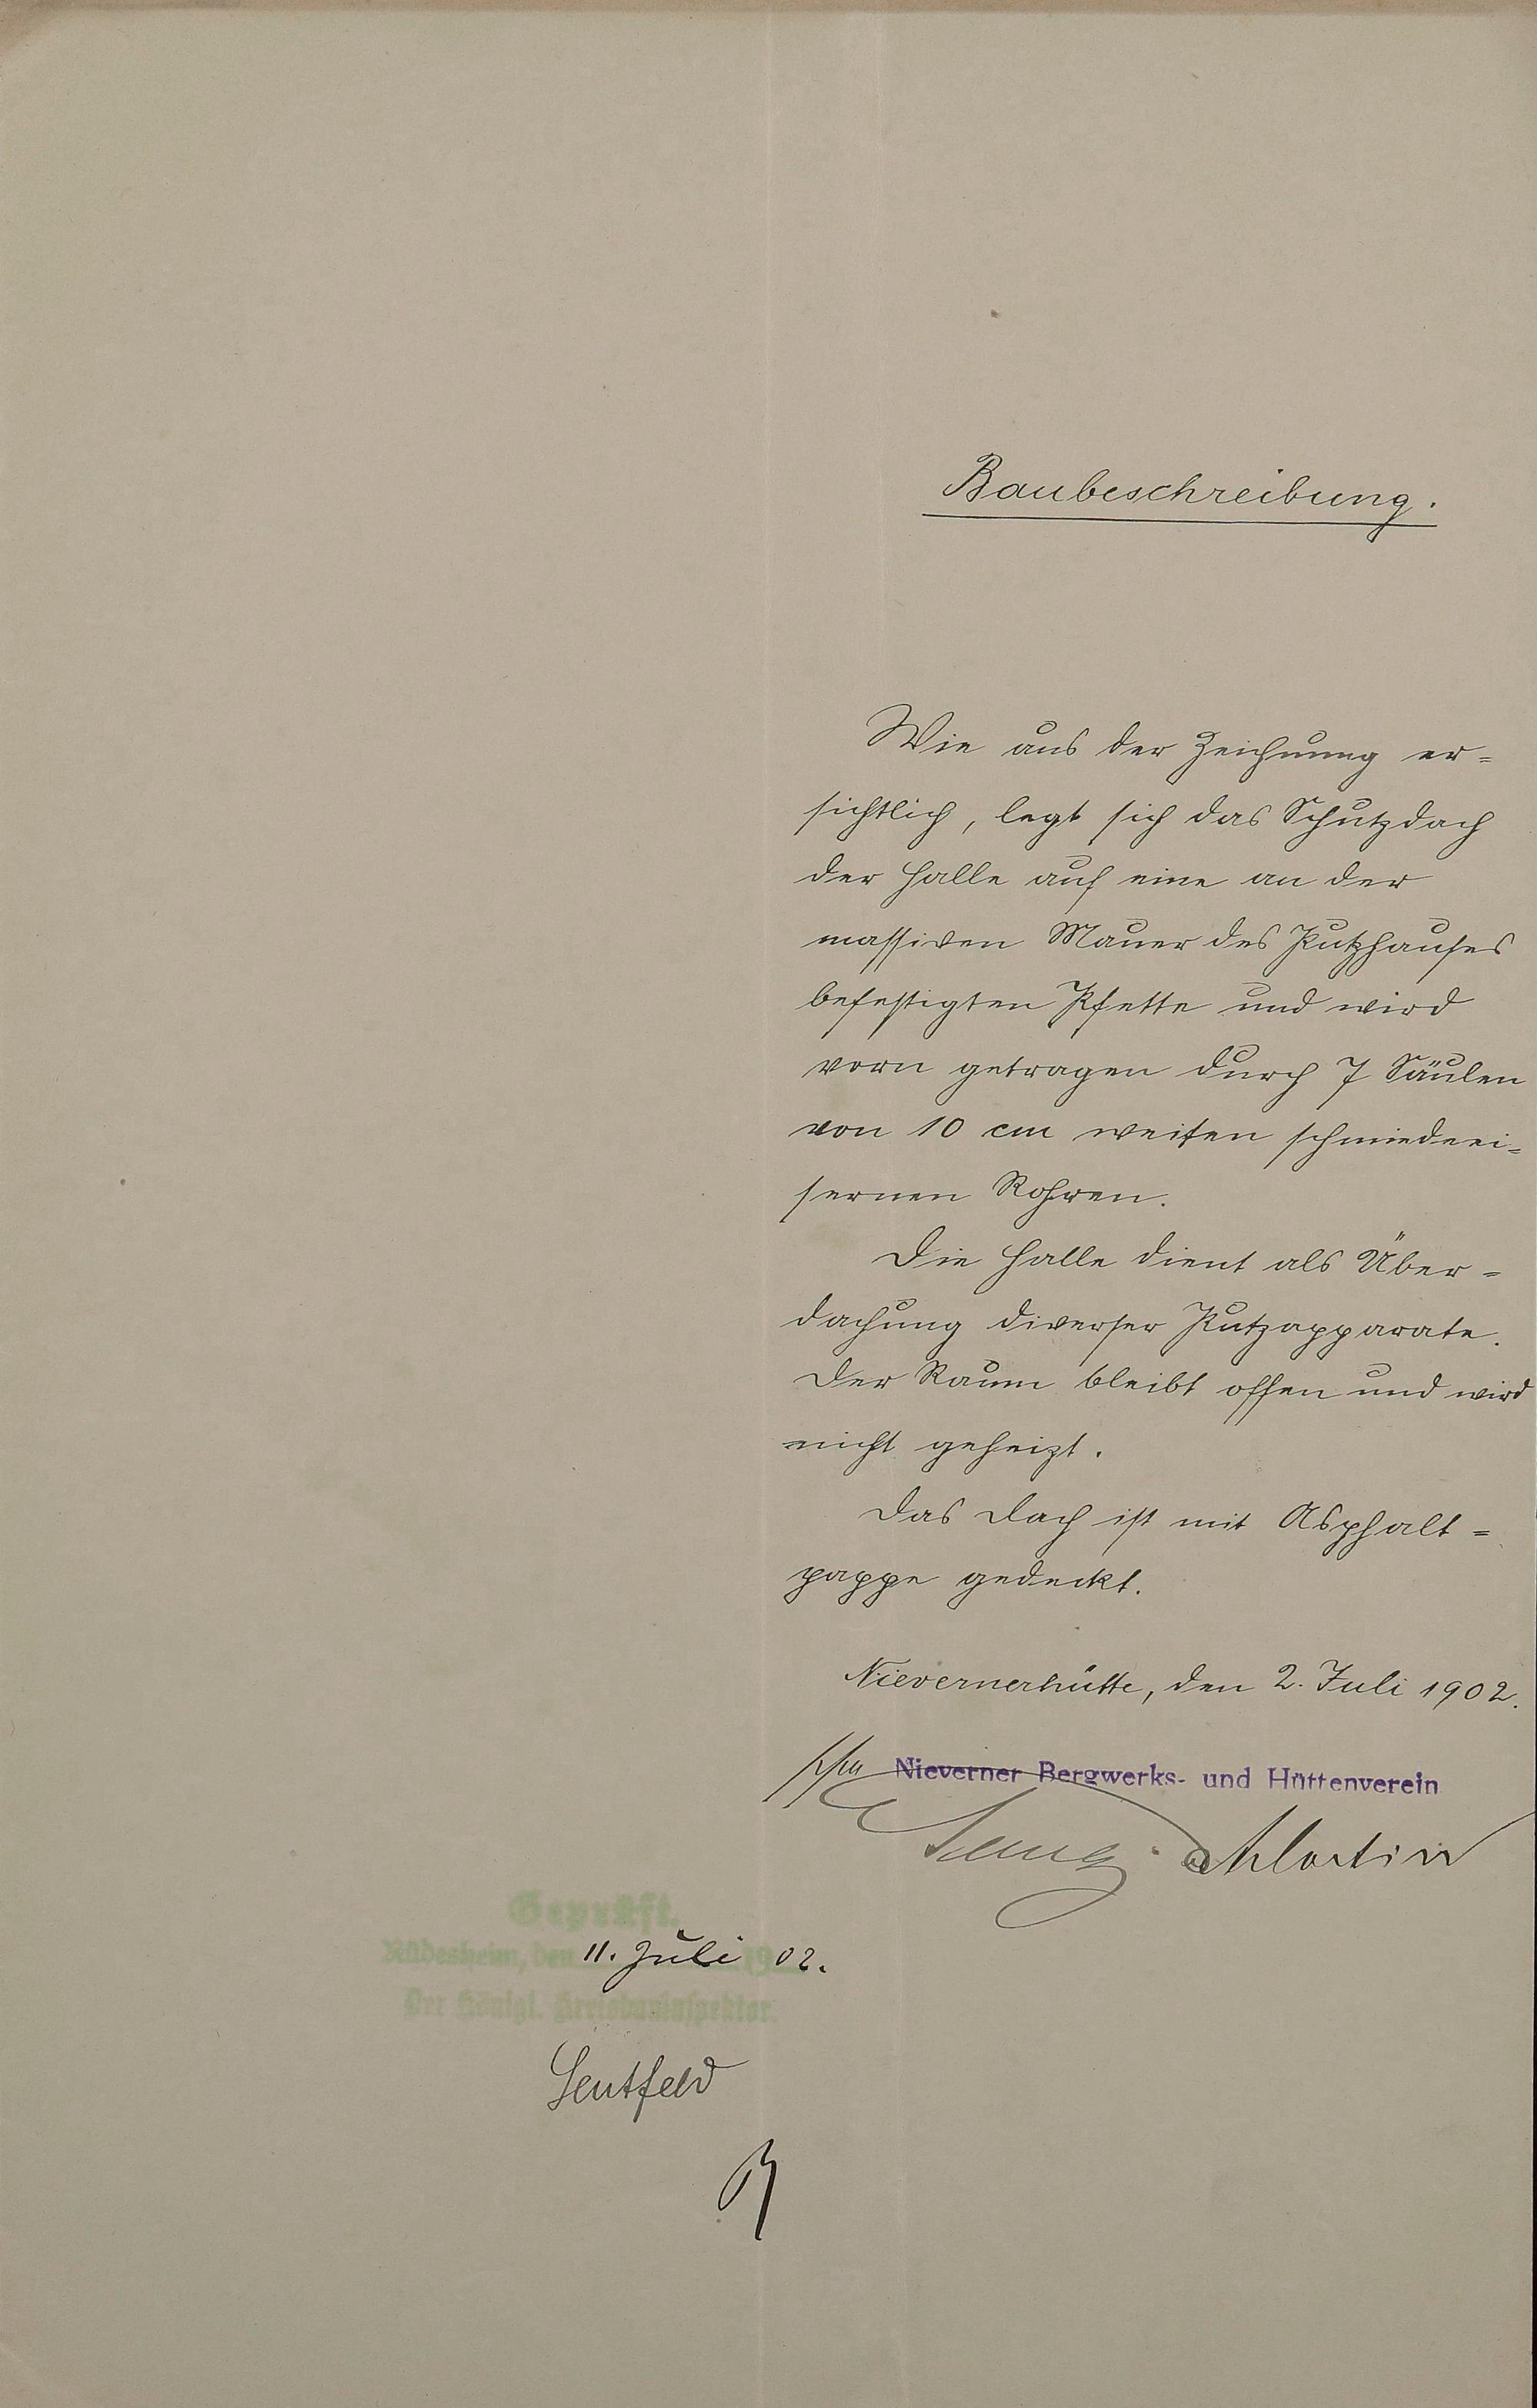 Baubeschreibung.
Wie aus der Zeichnung er=
sichtlich, legt sich das Schutzdach
der Halle auf eine an der
massiven Mauer des Putzhauses
befestigten Pfette und wird
vorn getragen durch 7 Säulen
von 10 cm weiten schmiedeei=
sernen Rohren.
Die Halle dient als Über=
dachung diverser Putzapparate.
Der Raum bleibt offen und wird
nicht geheizt.
Das Dach ist mit Asphalt=
pappe gedeckt.
Nievernerhütte, den 2. Juli 1902.
Nieverner Bergwerks- und Hüttenverein
Martin
Geprüft.
Rüdesheim, den 11. Juli 1902.
Der Königl. Kreisbauinspektor.